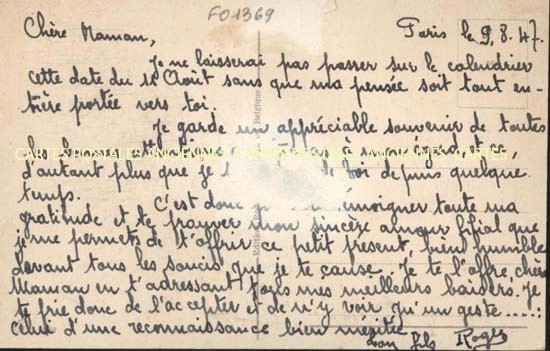 FO1369
Chère Maman, Paris le 9.8.47.
Je ne laisserai pas passer sur le calendrier
cette date du 15 Août sans que ma pensée soit tout en-
tière portée vers toi.
Je garde un appréciable souvenir de toutes
CARTES POSTALES ANCIENNES
d'autant plus que je toi depuis quelque
temps.
C'est donc témoigner toute ma
gratitude et te prouver mon sincère amour filial que
je me permets de t'offrir ce petit présent, bien humble
devant tous les soucis que je te cause. Je te l'offre chère
Maman en t'adressant tous mes meilleurs baisers. Je
te prie donc de l'accepter et de n'y voir qu'un geste.....:
celui d'une reconnaissance bien méritée.
ton fils Roger